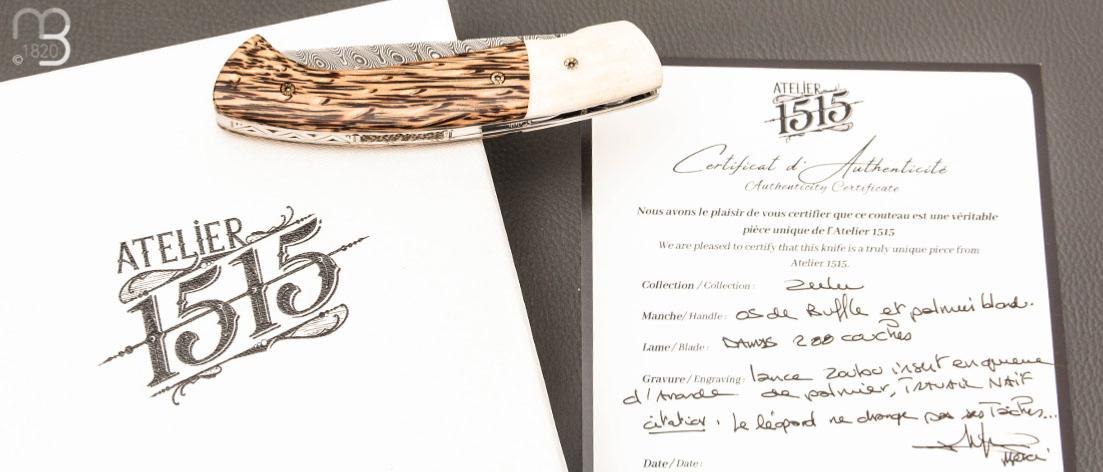 © 1820
ATELIER
1515
ATELIER
1515
Certificat d'Authenticité
Authenticity Certificate
Nous avons le plaisir de vous certifier que ce couteau est une véritable
pièce unique de l'Atelier 1515
We are pleased to certify that this knife is a truly unique piece from
Atelier 1515.
Collection / Collection : Zulu
Manche / Handle : os de Buffle et palmier blond.
Lame / Blade : DAMAS 200 couches
Gravure / Engraving : lance Zoulou insert en queue
d'Aronde de palmier, TRAVAIL NAÏF
citation : Le léopard ne change pas ses Taches...
Merci
Date / Date :